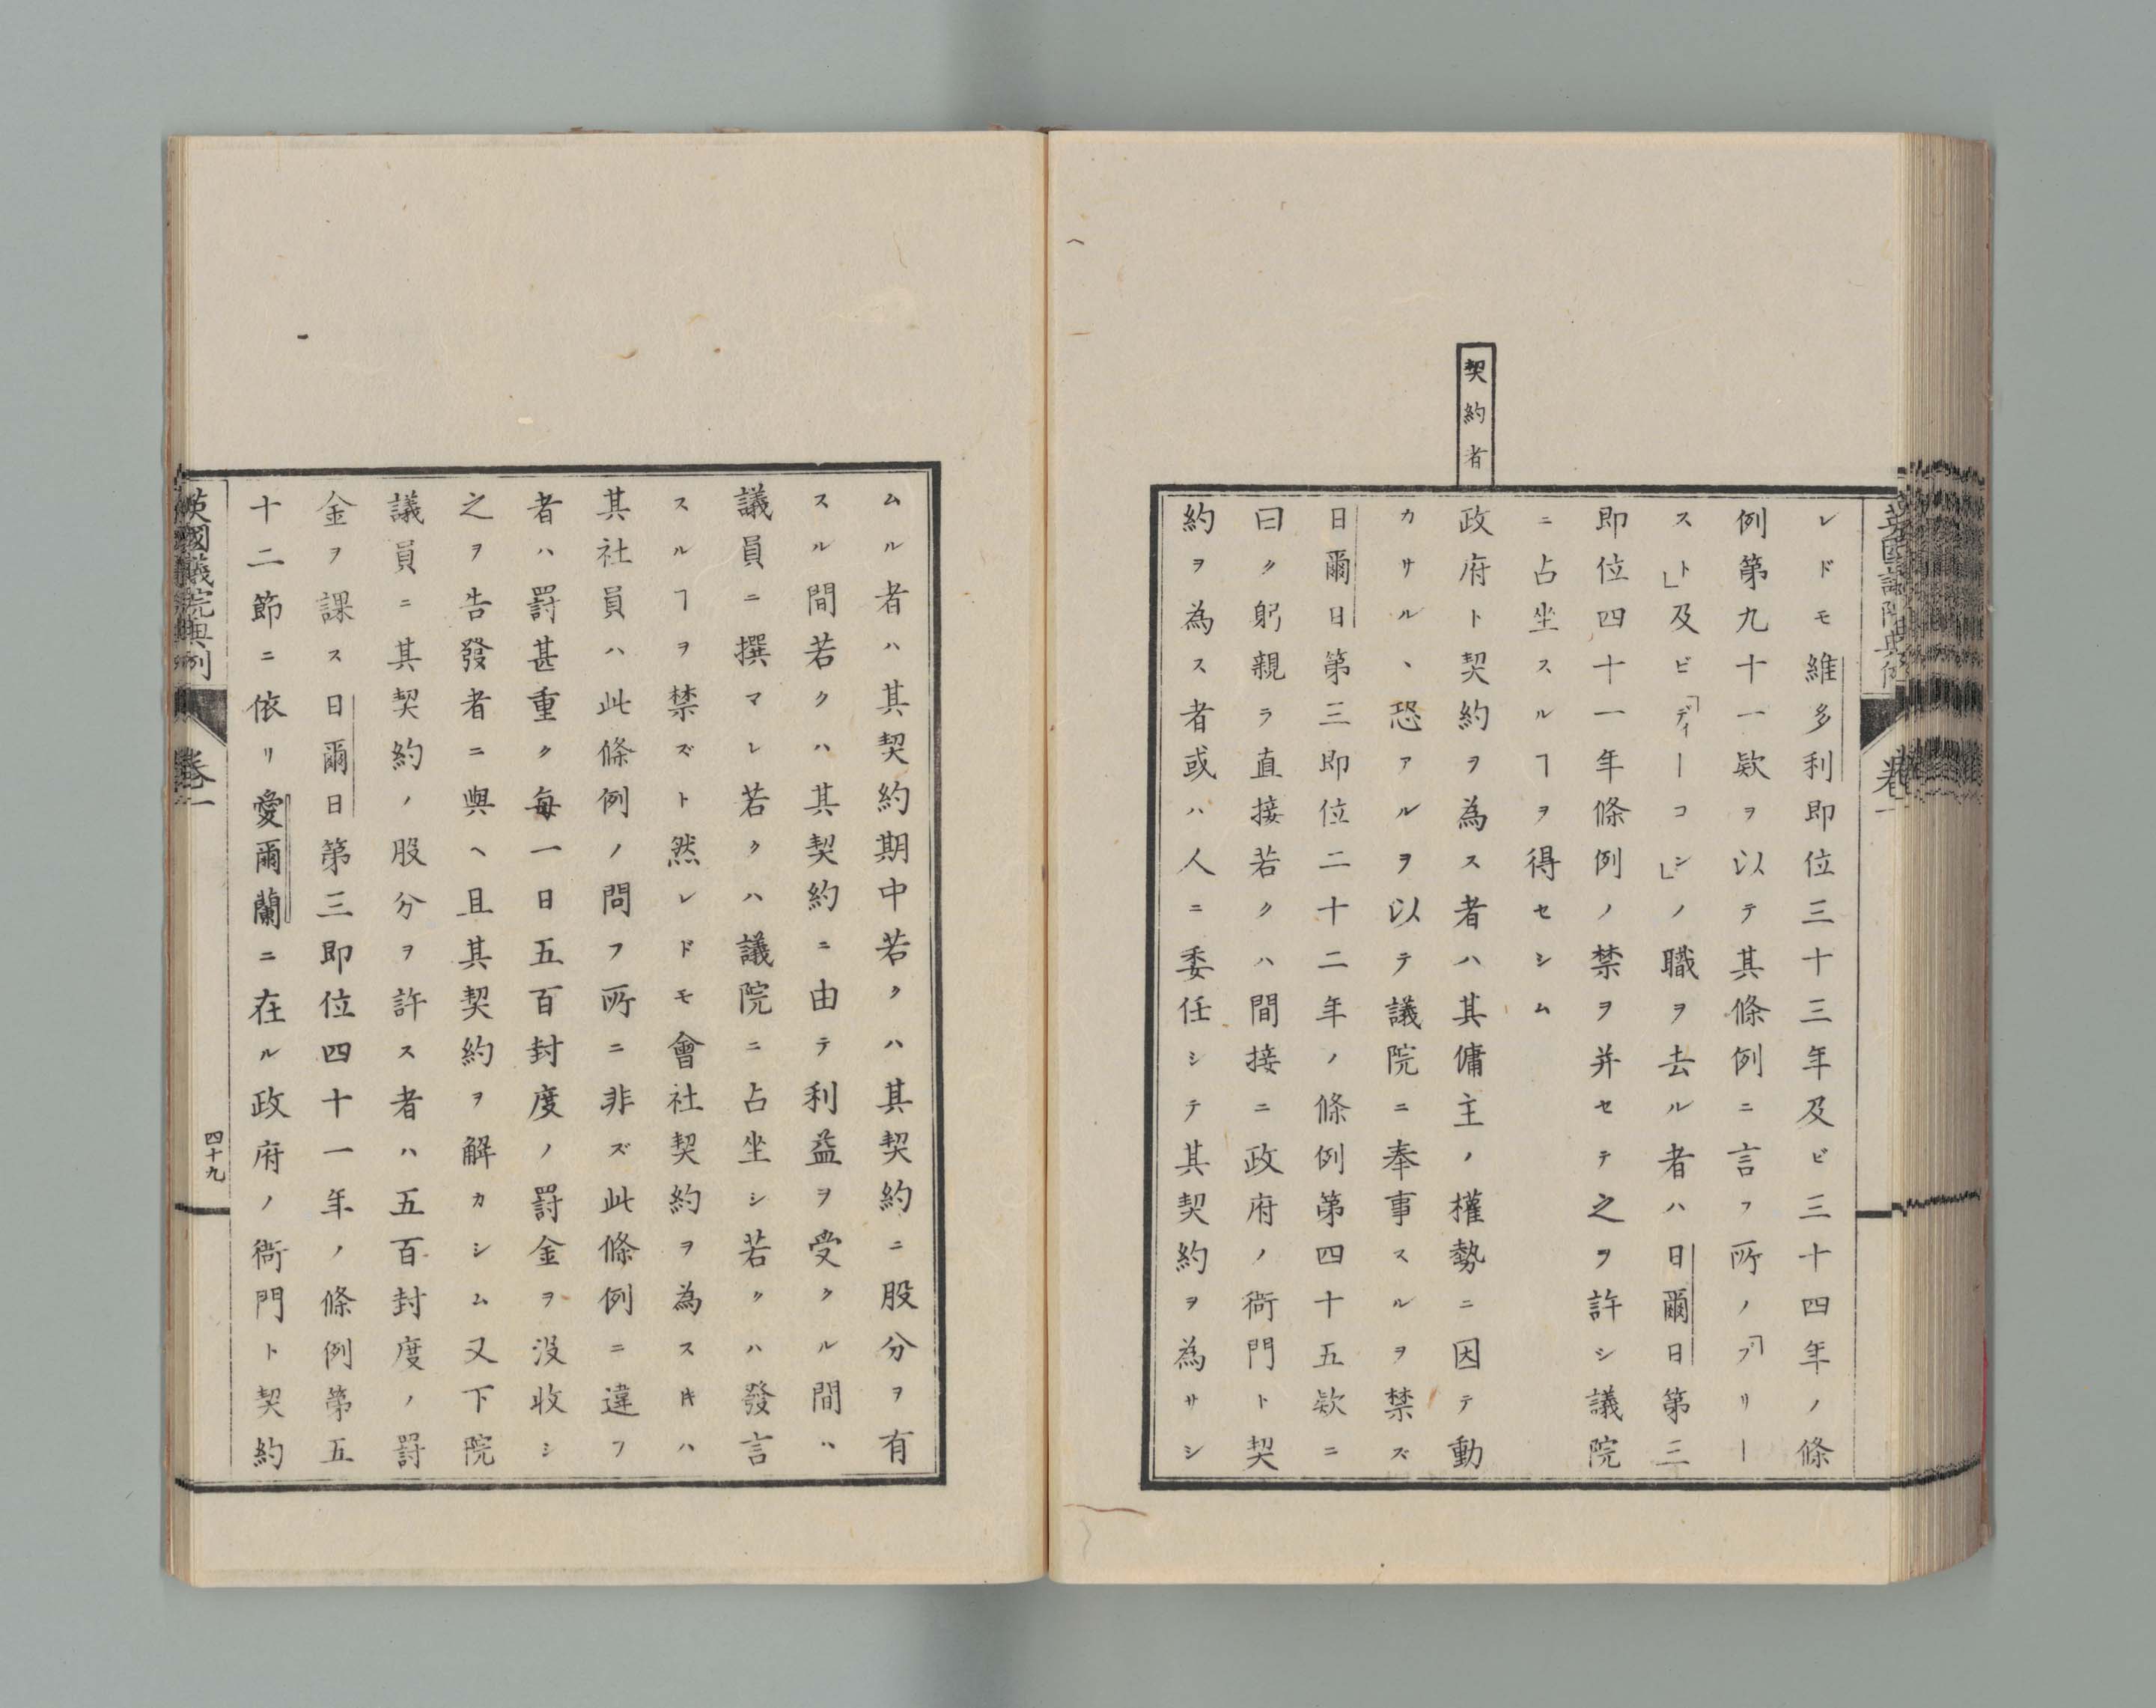 レドモ維多利即位三十三年及ビ三十四年ノ條
例第九十一欵ヲ以テ其條例ニ言フ所ノ「ブリー
スト」及ビ「ディーコン」ノ職ヲ去ル者ハ日爾日第三
即位四十一年條例ノ禁ヲ并セテ之ヲ許シ議院
ニ占坐スルヿヲ得セシム
契約者
政府ト契約ヲ為ス者ハ其傭主ノ權勢ニ因テ動
カサルヽ恐アルヲ以テ議院ニ奉事スルヲ禁ズ
日爾日第三即位二十二年ノ條例第四十五欵ニ
曰ク躬親ラ直接若クハ間接ニ政府ノ衙門ト契
約ヲ為ス者或ハ人ニ委任シテ其契約ヲ為サシ
ムル者ハ其契約期中若クハ其契約ニ股分ヲ有
スル間若クハ其契約ニ由テ利益ヲ受クル間ハ
議員ニ撰マレ若クハ議院ニ占坐シ若クハ發言
スルヿヲ禁ズト然レドモ會社契約ヲ為ス𪜈ハ
其社員ハ此條例ノ問フ所ニ非ズ此條例ニ違フ
者ハ罸甚重ク毎一日五百封度ノ罸金ヲ没收シ
之ヲ告發者ニ與ヘ且其契約ヲ解カシム又下院
議員ニ其契約ノ股分ヲ許ス者ハ五百封度ノ罸
金ヲ課ス日爾日第三即位四十一年ノ條例第五
十二節ニ依リ愛爾蘭ニ在ル政府ノ衙門ト契約
英國議院典例 卷一 四十九